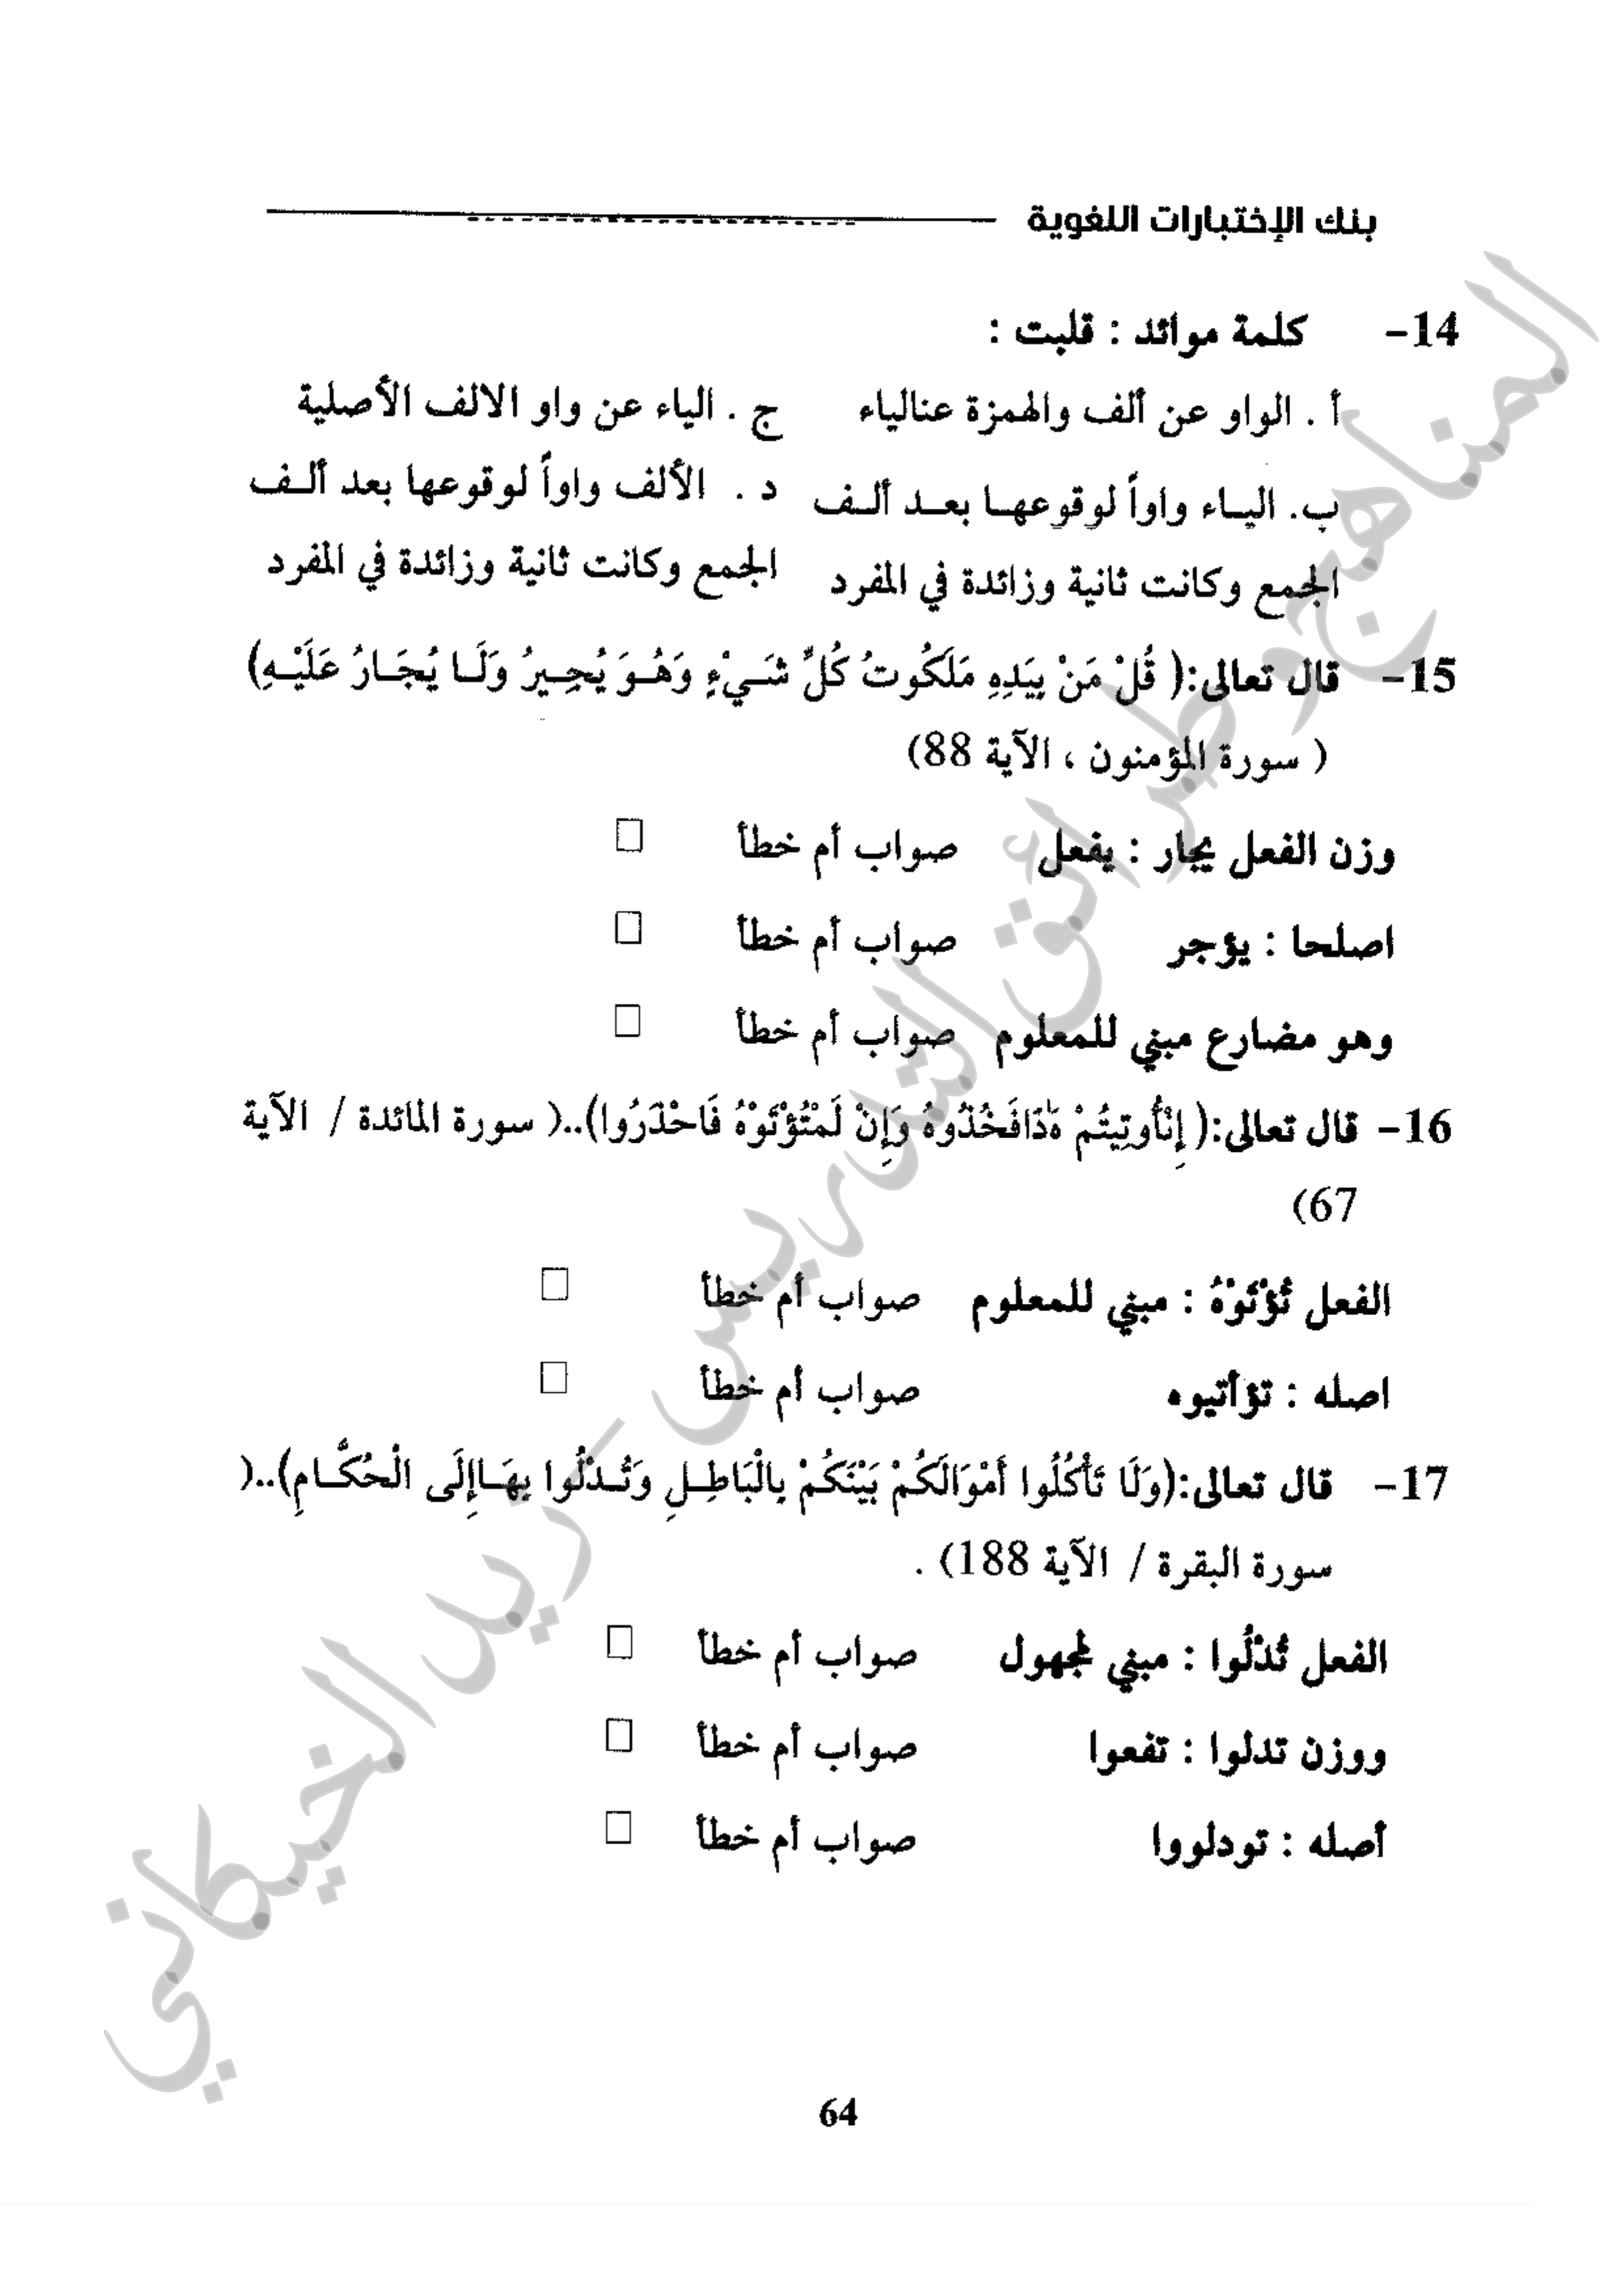 بنك الإختبارات اللغوية
14- كلمة موائد : قلبت :
أ . الواو عن ألف والهمزة عنالياء ج . الياء عن واو الالف الأصلية
ب. اليـاء واواً لوقوعهـا بعـد ألـف د . الألف واواً لوقوعها بعد ألـف
الجمع وكانت ثانية وزائدة في المفرد الجمع وكانت ثانية وزائدة في المفرد
15- قال تعالى:( قُلْ مَنْ بِيَدِهِ مَلَكُوتُ كُلِّ شَـيْءٍ وَهُـوَ يُجِـيرُ وَلَـا يُجَـارُ عَلَيْـهِ)
( سورة المؤمنون ، الآية 88)
وزن الفعل يجار : يفعل صواب أم خطأ
اصلحا : يؤجر صواب أم خطأ
وهو مضارع مبني للمعلوم صواب أم خطأ
16- قال تعالى:( إِنْأُوتِيتُمْ هَٰذَافَخُذُوهُ وَإِنْ لَمْتُؤْتَوْهُ فَاحْذَرُوا)..( سورة المائدة / الآية
67)
الفعل تُؤْتَوْهُ : مبني للمعلوم صواب أم خطأ
اصله : تؤأتيوه صواب أم خطأ
17- قال تعالى:(وَلَا تَأْكُلُوا أَمْوَالَكُمْ بَيْنَكُمْ بِالْبَاطِـلِ وَتُـدْلُوا بِهَـاإِلَى الْحُكَّـامِ)..(
سورة البقرة / الآية 188) .
الفعل تُدْلُوا : مبني لمجهول صواب أم خطأ
ووزن تدلوا : تفعوا صواب أم خطأ
أصله : تودلووا صواب أم خطأ
المناهج وطرائق التدريس - زيد الخيكاني
64